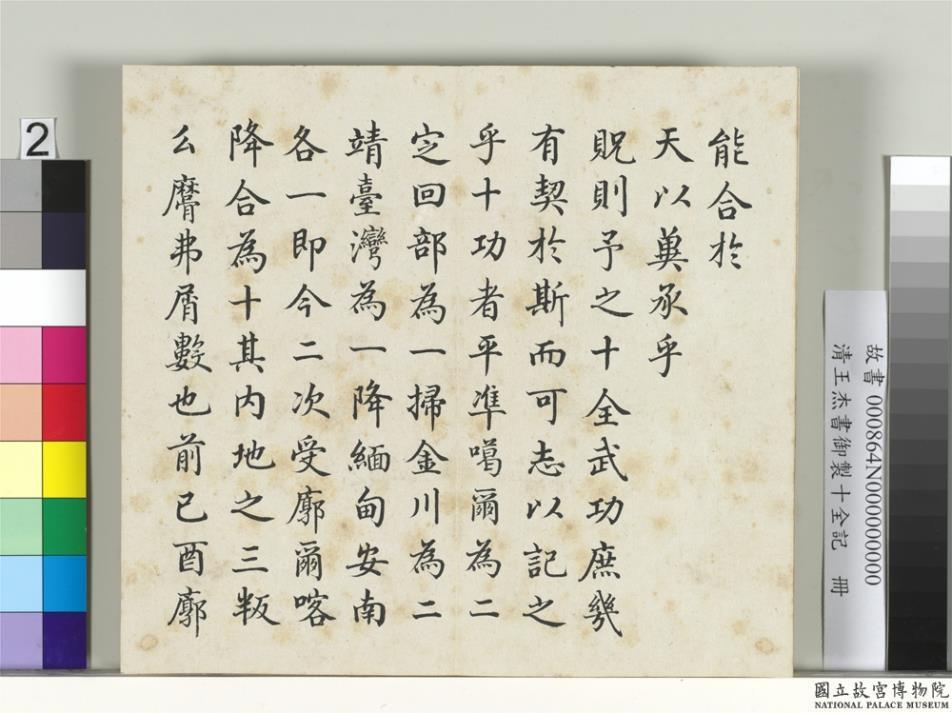 能合於
天以冀承乎
貺則予之十全武功庶幾
有契於斯而可志以記之
乎十功者平準噶爾為二
定回部為一掃金川為二
靖臺灣為一降緬甸安南
各一即今二次受廓爾喀
降合為十其內地之三叛
么麿弗屑數也前己酉廓
2
故書 000864N000000000
清王杰書御製十全記 冊
國立故宮博物院
NATIONAL PALACE MUSEUM